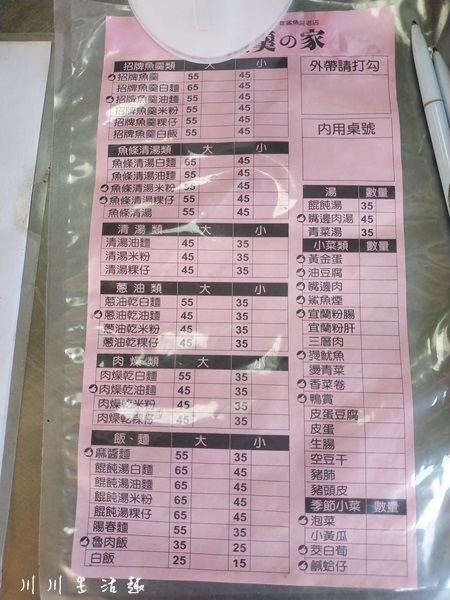 の家
招牌魚羹類 大 小
招牌魚羹 55 45
招牌魚羹白麵 65 45
招牌魚羹油麵 55 45
招牌魚羹米粉 55 45
招牌魚羹粿仔 55 45
招牌魚羹白飯 55 45
魚條清湯類 大 小
魚條清湯白麵 65 45
魚條清湯油麵 55 45
魚條清湯米粉 55 45
魚條清湯粿仔 55 45
魚條清湯 55 45
清湯類 大 小
清湯油麵 45 35
清湯米粉 45 35
清湯粿仔 45 35
蔥油類 大 小
蔥油乾白麵 55 45
蔥油乾油麵 45 35
蔥油乾米粉 45 35
蔥油乾粿仔 45 35
肉燥類 大 小
肉燥乾白麵 55 35
肉燥乾油麵 45 35
肉燥乾米粉 45 35
肉燥乾粿仔 45 35
飯、麵 大 小
麻醬麵 55 35
餛飩湯白麵 65 45
餛飩湯油麵 65 45
餛飩湯米粉 65 45
餛飩湯粿仔 65 45
陽春麵 55 35
魯肉飯 35 25
白飯 25 15
外帶請打勾
內用桌號
湯 數量
餛飩湯 35
嘴邊肉湯 45
青菜湯 35
小菜類 數量
黃金蛋
油豆腐
嘴邊肉
鯊魚煙
宜蘭粉腸
宜蘭粉肝
三層肉
燙魷魚
燙青菜
香菜卷
鴨賞
皮蛋豆腐
皮蛋
生腸
空豆干
豬肺
豬頭皮
季節小菜 數量
泡菜
小黃瓜
茭白荀
鹹蛤仔
川川生活趣